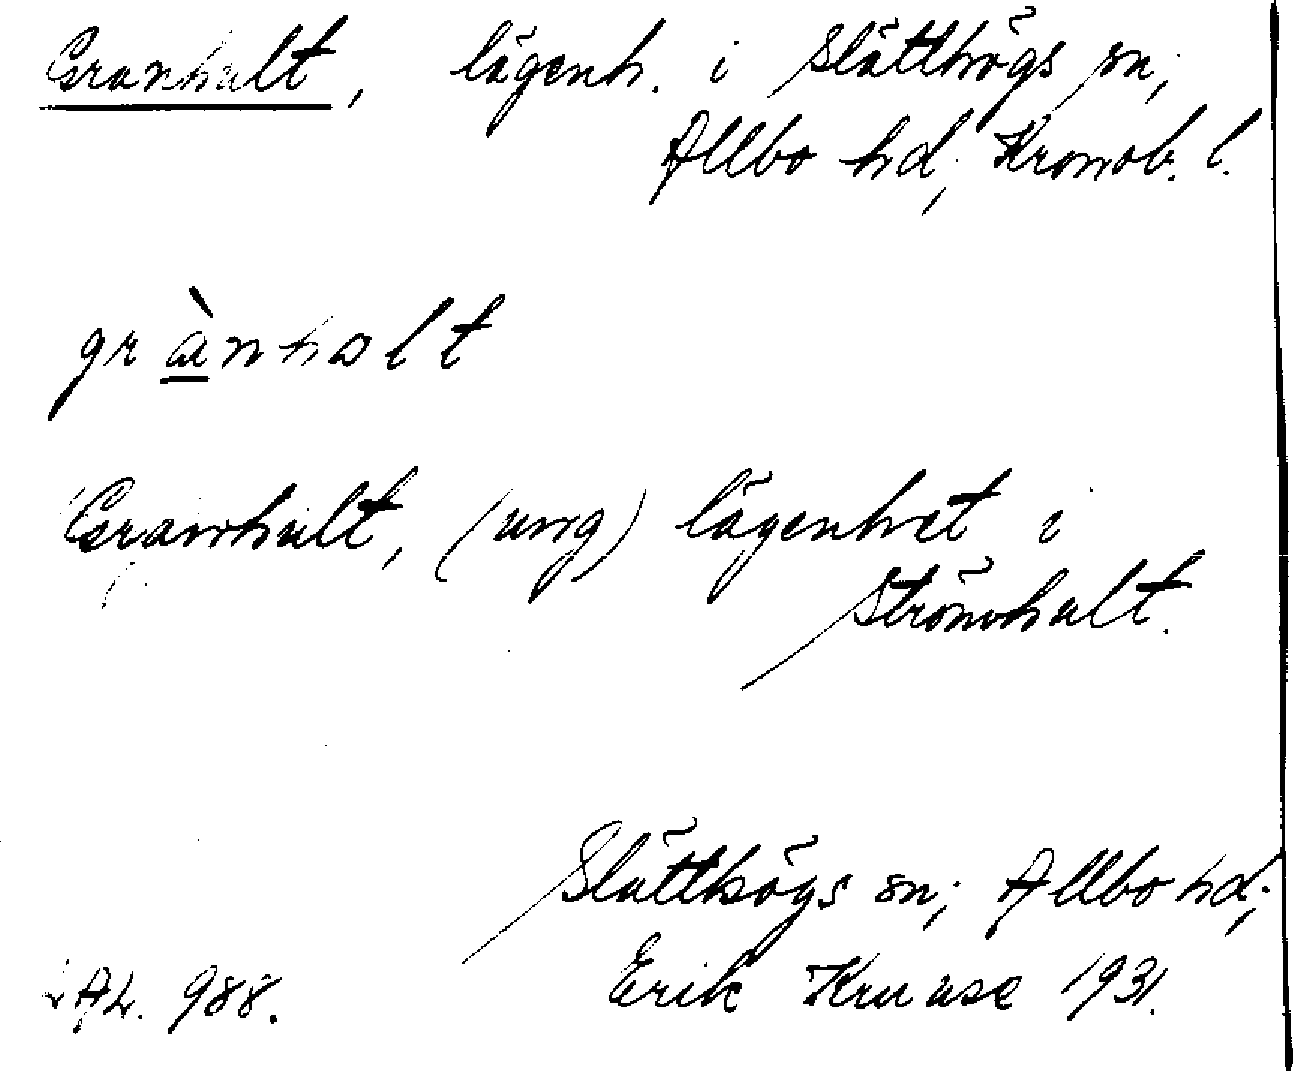 Granhult, lägenh. i Slätthögs sn;
Allbo hd; Kronob. l.
grànhalt
Granhult, (ung) lägenhet i
Strömhult.
Slätthögs sn; Allbo hd;
LAL. 988. Erik Kruuse 1931.